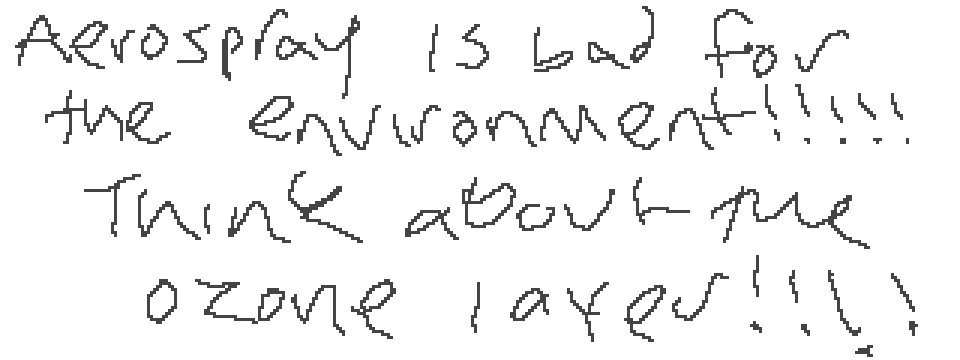 Aerospray is bad for
the environment!!!!!
Think about the
ozone layer!!!!